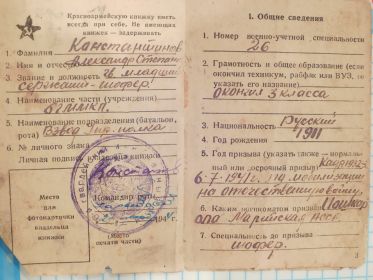 Красноармейскую книжку иметь
всегда при себе. Не имеющих
книжек — задерживать
1. Фамилия Константинов
2. Имя и отчество Александр Степан
3. Звание и должность гв младший
сержант-шофер
4. Наименование части (учреждения)
5. Наименование подразделения (батальон,
рота) Взвод
6. № личного знака
Личная подпись владельца книжки
Место
для
фотокарточки
владельца
книжки
Командир
Место
печати части)
1. Общие сведения
1. Номер военно-учетной специальности
26
2. Грамотность и общее образование (если
окончил техникум, рабфак или ВУЗ, то
указать его название)
окончил 3 класса
3. Национальность Русский
4. Год рождения 1911
5. Год призыва (указать также — нормаль-
ный или досрочный призыв)
6-7-1941г. по мобилизации
на отечественную войну
6. Каким военкоматом призван Йошкар
ола Марийская
7. Специальность до призыва
шофер.
3